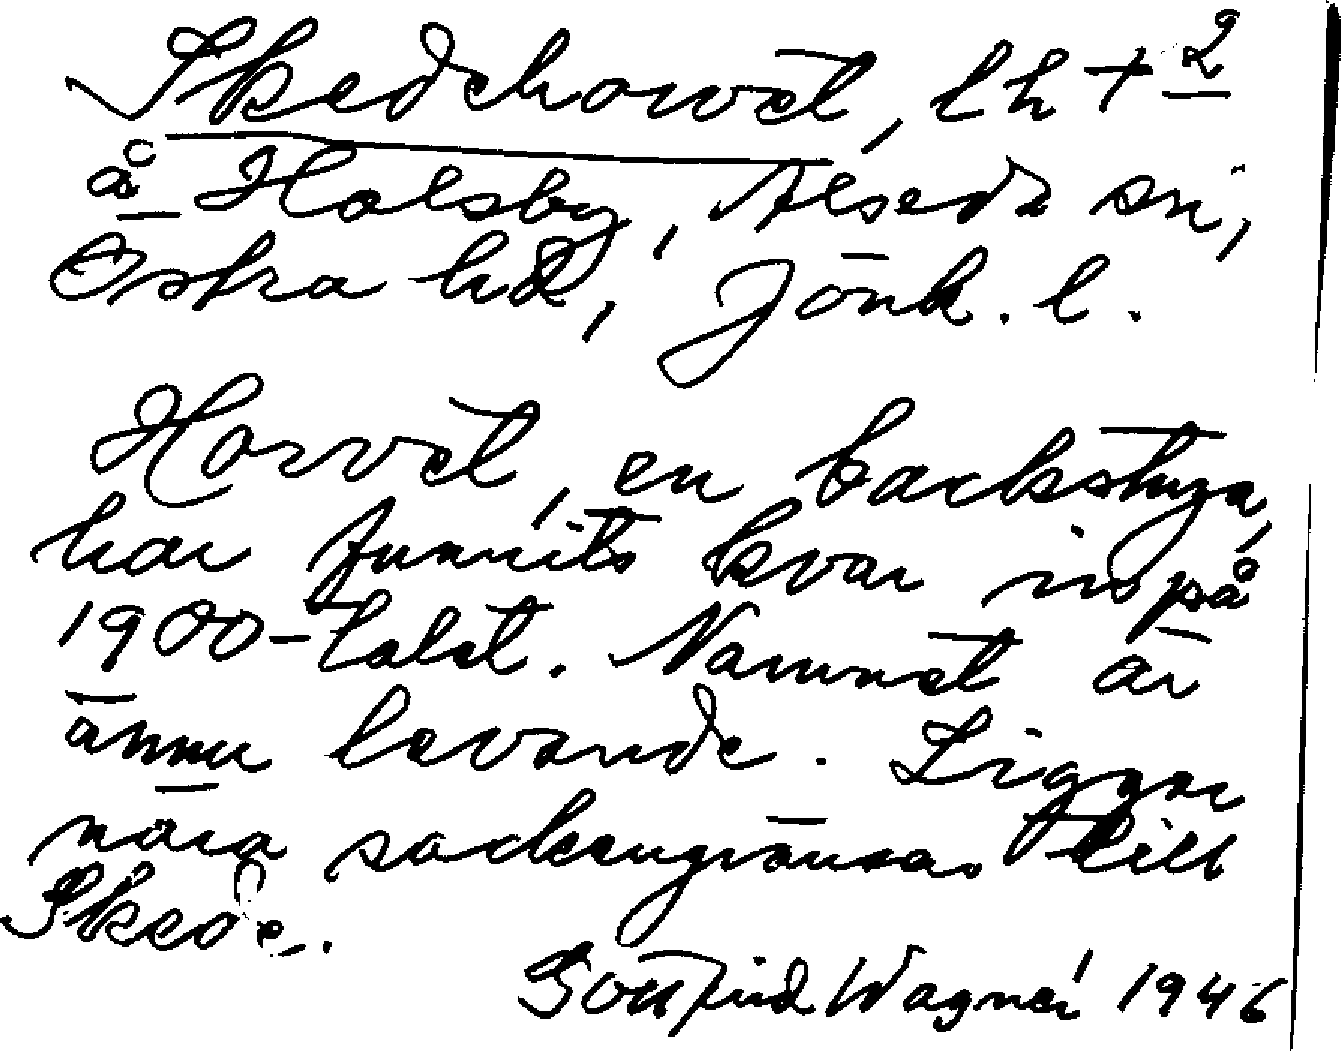 Skedehorvet, lh + 2
å Holsby, Alseda sn,
Östra hd, Jönk. l.
Horvet, en backstuga,
har funnits kvar inpå
1900-talet. Namnet är
ännu levande. Ligger
nära sockengränsen till
Skede.
Gottfrid Wagnér 1946